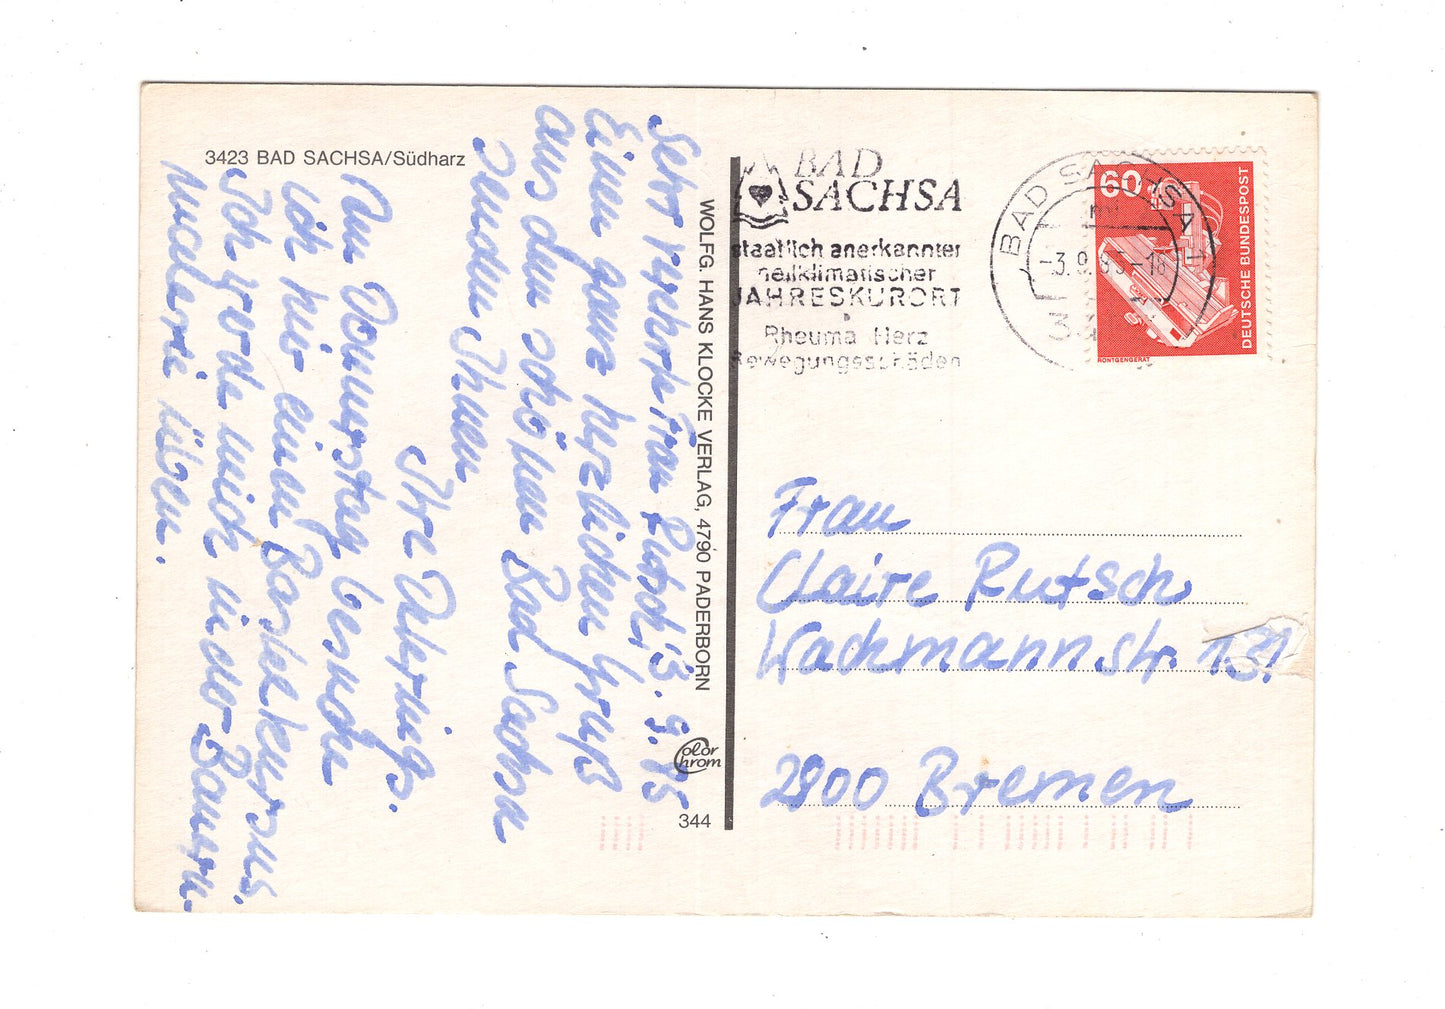 3423 BAD SACHSA/Südharz
Sehr verehrte Frau Rutsch, 3. 9. 85
Einen ganz herzlichen Gruß
aus dem schönen Bad Sachsa
senden Ihnen
Ihre
Am Donnerstag besuche
ich hier einen Bastelkursus.
Ich werde mich in der Bauern-
malerei üben.
WOLFG. HANS KLOCKE VERLAG, 4790 PADERBORN
Color
Chrom
344
BAD
SACHSA
staatlich anerkannter
heilklimatischer
JAHRESKURORT
Rheuma Herz
Bewegungsschäden
BAD SACHSA 1
-3.9.85-18
60
DEUTSCHE BUNDESPOST
RÖNTGENGERÄT
Frau
Claire Rutsch
Wachmannstr. 131
2800 Bremen